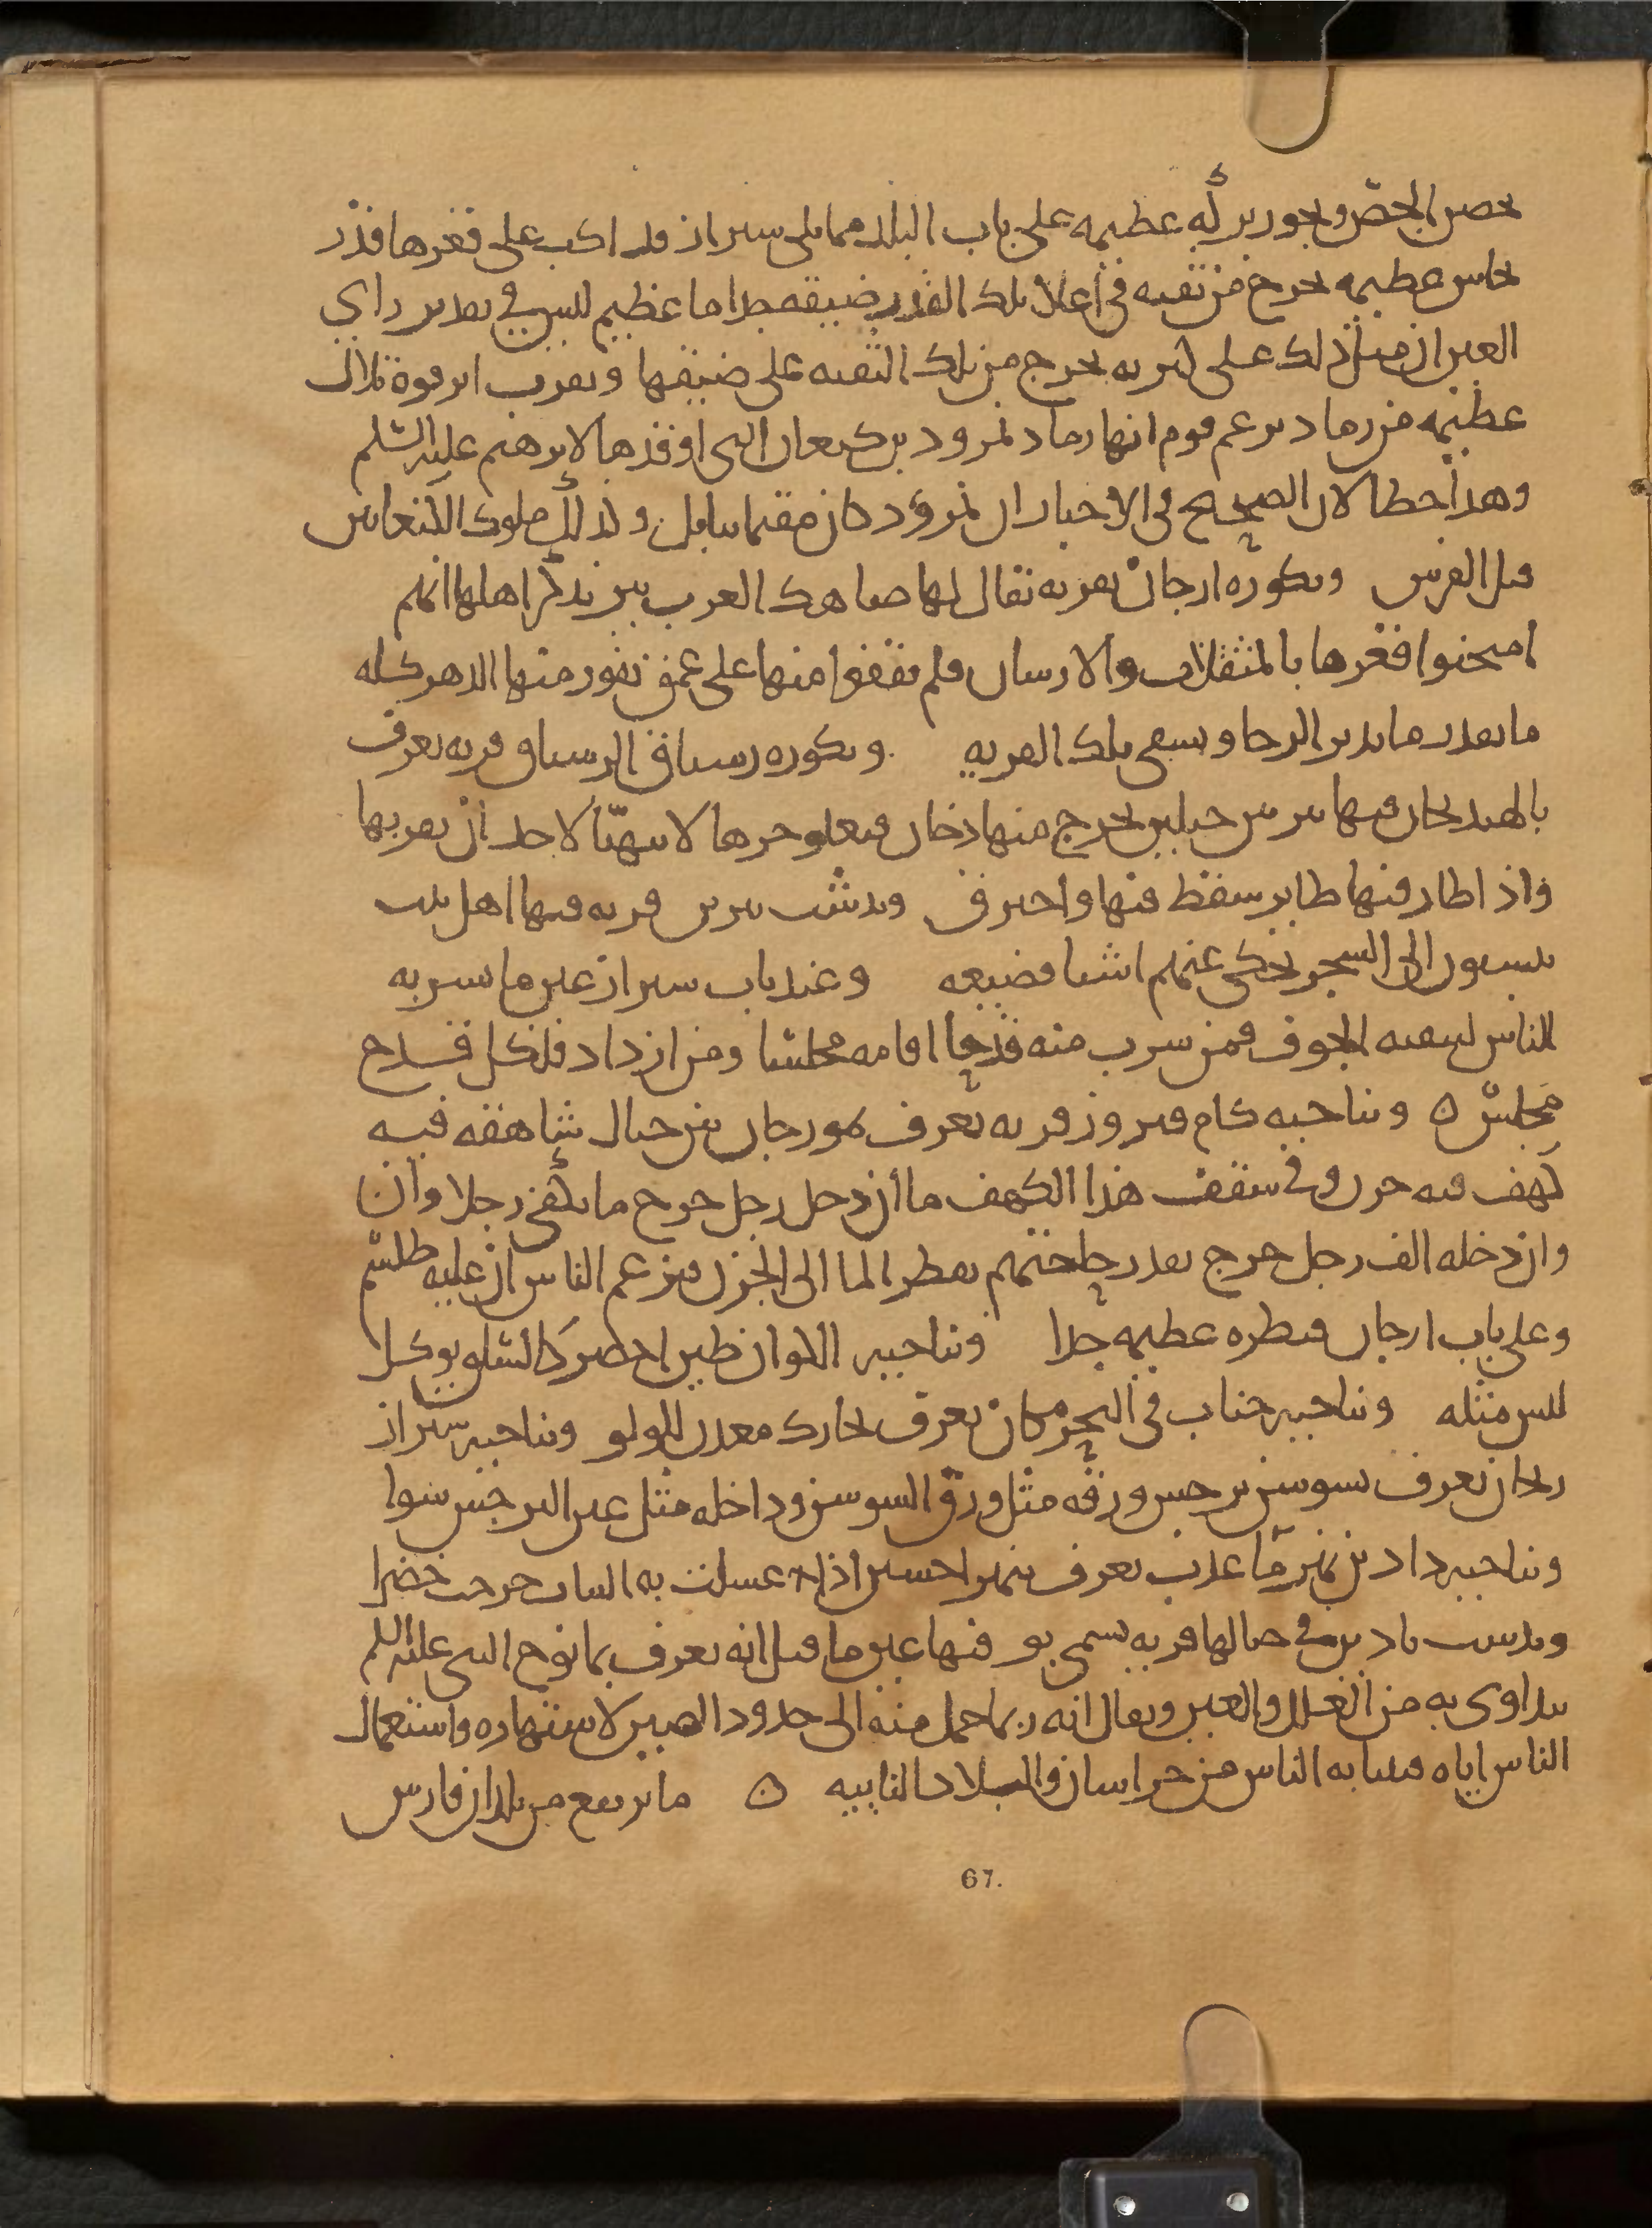 بحصن الجص وبجور بركه عظيمه على باب البلد مما يلى سيراز قد اكب على قعرها قدر
نحاس عظيمه يخرج من ثقبه فى اعلا تلك القدر ضيقه جدا ما عظيم ليس فى تقدير راي
العين ان مثل ذلك على كثرته يخرج من تلك الثقبه على ضيقها وبقرب ابرقوه تلال
عظيمه من رماد يزعم قوم انها رماد نمرود بن كنعان التى اوقدها لابرهيم عليه السلم
وهذا خطا لان الصحيح فى الاخبار ان نمرود كان مقيما ببابل وكذلك ملوك الكنعانين
قبل الفرس وبكوره ارجان بقريه تقال لها صاهك العرب بير يذكر اهلها انهم
امتحنوا قعرها بالمثقلات والارسان فلم يقفوا منها على عمق تفور منها الدهر كله
ما بقدر ما يدير الرحا ويسقى تلك القريه وبكوره رستاق الرستاق قريه تعرف
بالهنديجان فيها بير بين جبلين يخرج منها دخان فيعلو حرها لا يتهيا لاحد ان يقربها
واذا طار فيها طاير سقط فيها واحترق وبدشت بربن قريه فيها اهل بيت
ينسبون الى السحر يحكى عنهم اشيا فضيعه وعند باب سيراز عين ما يشربه
الناس لتنقيه الجوف فمن شرب منه قدحا اقامه مجلسا ومن ازداد فلكل قدح
مجلس ه وبناحيه كام فيروز قريه تعرف بمورجان بين جبال شاهقه فيه
كهف فيه جرن وفى سقف هذا الكهف ما ان دخل رجل خرج ما يكفى رجلا وان
وان دخله الف رجل خرج بقدر حاجتهم يقطر الما الى الجرن فيزعم الناس ان عليه طلسم
وعلى باب ارجان قنطره عظيمه جدا وبناحيه اللوان طين اخضر كالسلق يوكل
ليس مثله وبناحيه جناب فى البحر مكان يعرف بخارك معدن للولو وبناحيه سيراز
ريحان يعرف بسوسن نرجس ورقه مثل ورق السوسن وداخله مثل عين النرجس سوا
وبناحيه دادين نهر ما عذب يعرف بنهر اخشين اذا غسلت به الثياب خرجت خضرا
وبدست بادين فى جبالها قريه يسمى بو فيها عين ما قيل انه يعرف بما نوح النبى عليه السلم
يتداوى به من العلل والعين ويقال انه ربما حمل منه الى حدود الصين لاشتهاره واستعمال
الناس اياه فينتابه الناس من خراسان والبلاد النايبه ه ما يرتفع من بلدان فارس
67.